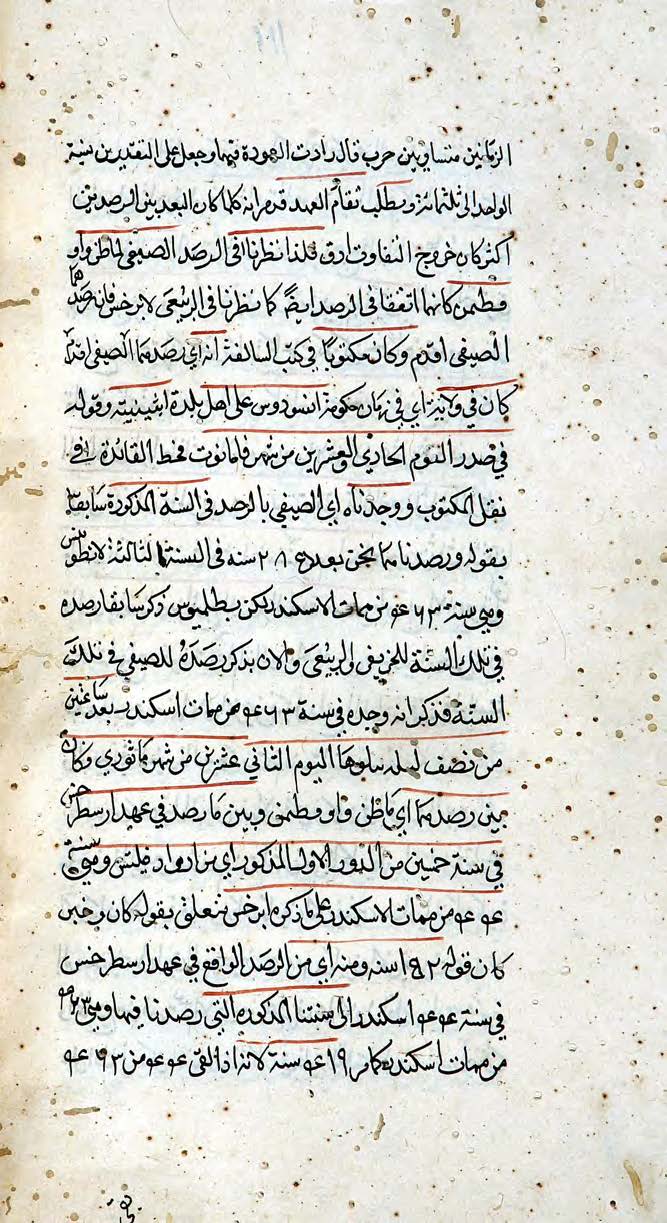 الزمانين متساويين حرب قال زادت العودة فيها وجعل على التقديرين سنة
الواحد الى ثلثمائة ويطلب تقادم العهد قدم انه كلما كان البعد بين الرصدين
اكثر كان خروج التفاوت ادق فلذا نظرنا في الرصد الصيفي لماطن واو
قطمن كانهما اتفقا في الرصد ايضا كما نظرنا في الربيعي لابرخس فان رصدهما
الصيفي اقدم وكان مكتوبا في كتب السالفة انه اي رصدهما الصيفي اقدم
كان في ولاية اي في زمان حكومة افسودوس على اهل بلدة اثينيية وقوله
في صدر اليوم الحادي والعشرين من شهر فامانوت فخط القائدة في
نقل المكتوب ووجدناه اي الصيفي بالرصد في السنة المذكورة سابقا
بقوله ورصدنا نحن بعد ٢٨٥ سنه في السنة الثالثة لانطونينس
وهي سنة ٤٦٣ من ممات الاسكندر لكن بطلميوس ذكر سابقا رصده
في تلك السنة للخريفي والربيعي والان يذكر رصده للصيفي في تلك
السنة فذكر انه وجده في سنة ٤٦٣ من ممات اسكندر بعد ساعتين
من نصف ليله يتلوها اليوم الثاني عشر من شهر ماثوري وكان
بين رصدهما اي ماطن واو قطمن وبين ما رصد في عهد ارسطرخس
في سنة خمسين من الدور الاول المذكور اي من ادوار فيلبس وهي سنة
٤٤ من ممات الاسكندر على ما ذكره ابرخس متعلق بقوله كان وخبر
كان قوله ١٥٢ سنه ومنه اي من الرصد الواقع في عهد ارسطرخس
في سنة ٤٤ اسكندر الى سنتنا المذكوره التي رصدنا فيها وهي ٤٦٣
من ممات اسكندر كامر ٤١٩ سنة لانه اذا القي ٤٤ من ٤٦٣